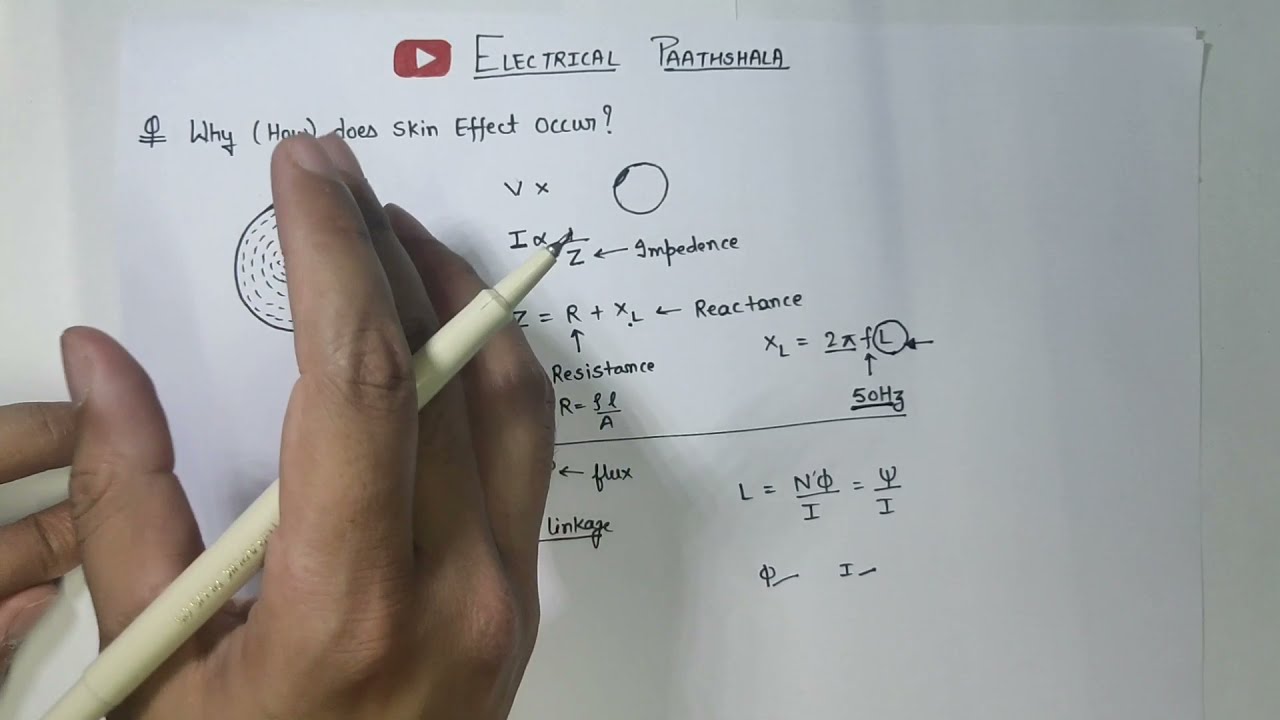 ELECTRICAL PAATHSHALA
Q Why (How) does Skin Effect Occur?
V x
I ∝ 1/Z ← Impedence
Z = R + XL ← Reactance
↑
Resistance
XL = 2π f L ←
↑
50Hz
R = ρl/A
← flux
linkage
L = NΦ/I = Ψ/I
Φ I